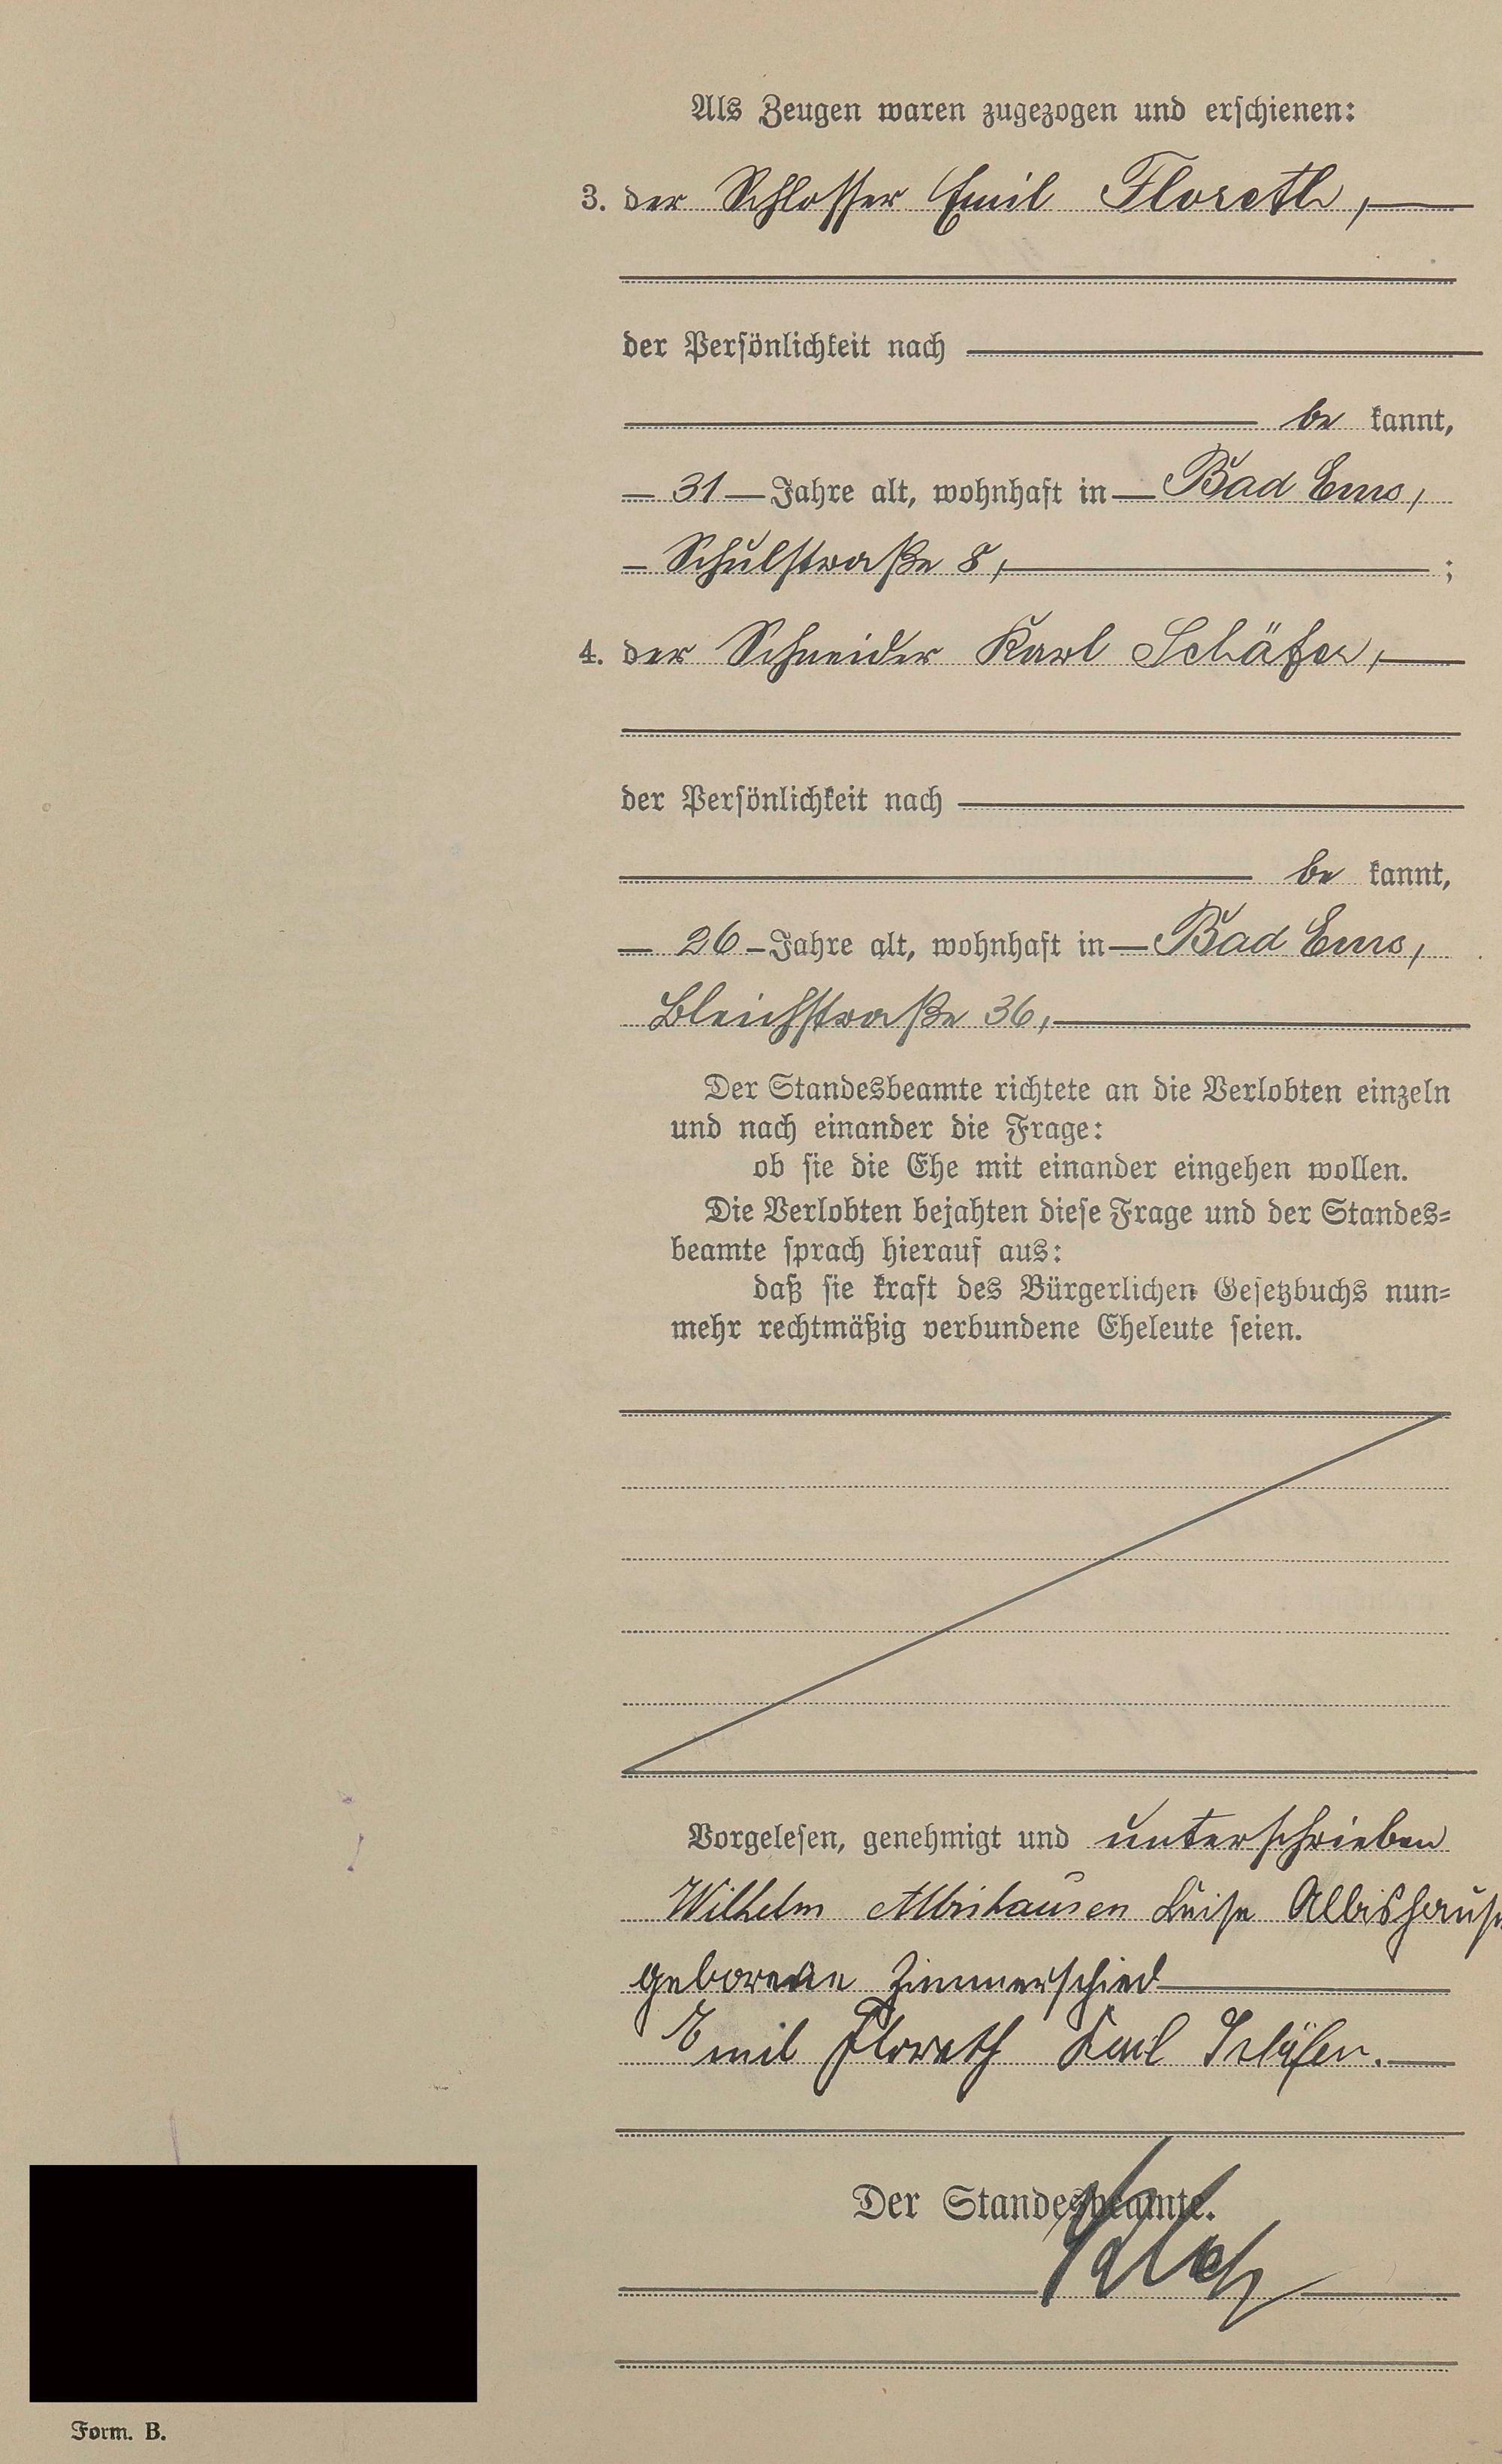 Als Zeugen waren zugezogen und erschienen:
3. der Schlosser Emil Floreth,
der Persönlichkeit nach
be kannt,
31 Jahre alt, wohnhaft in Bad Ems,
Schulstraße 8, ;
4. der Schneider Karl Schäfer,
der Persönlichkeit nach
be kannt,
26 Jahre alt, wohnhaft in Bad Ems,
Bleichstraße 36,
Der Standesbeamte richtete an die Verlobten einzeln
und nach einander die Frage:
ob sie die Ehe mit einander eingehen wollen.
Die Verlobten bejahten diese Frage und der Standes-
beamte sprach hierauf aus:
daß sie kraft des Bürgerlichen Gesetzbuchs nun-
mehr rechtmäßig verbundene Eheleute seien.
Vorgelesen, genehmigt und unterschrieben
Wilhelm Albishausen Luise Albishause
geborene Zimmerschied
Emil Floreth Karl Schäfer.
Der Standesbeamte.
Form. B.